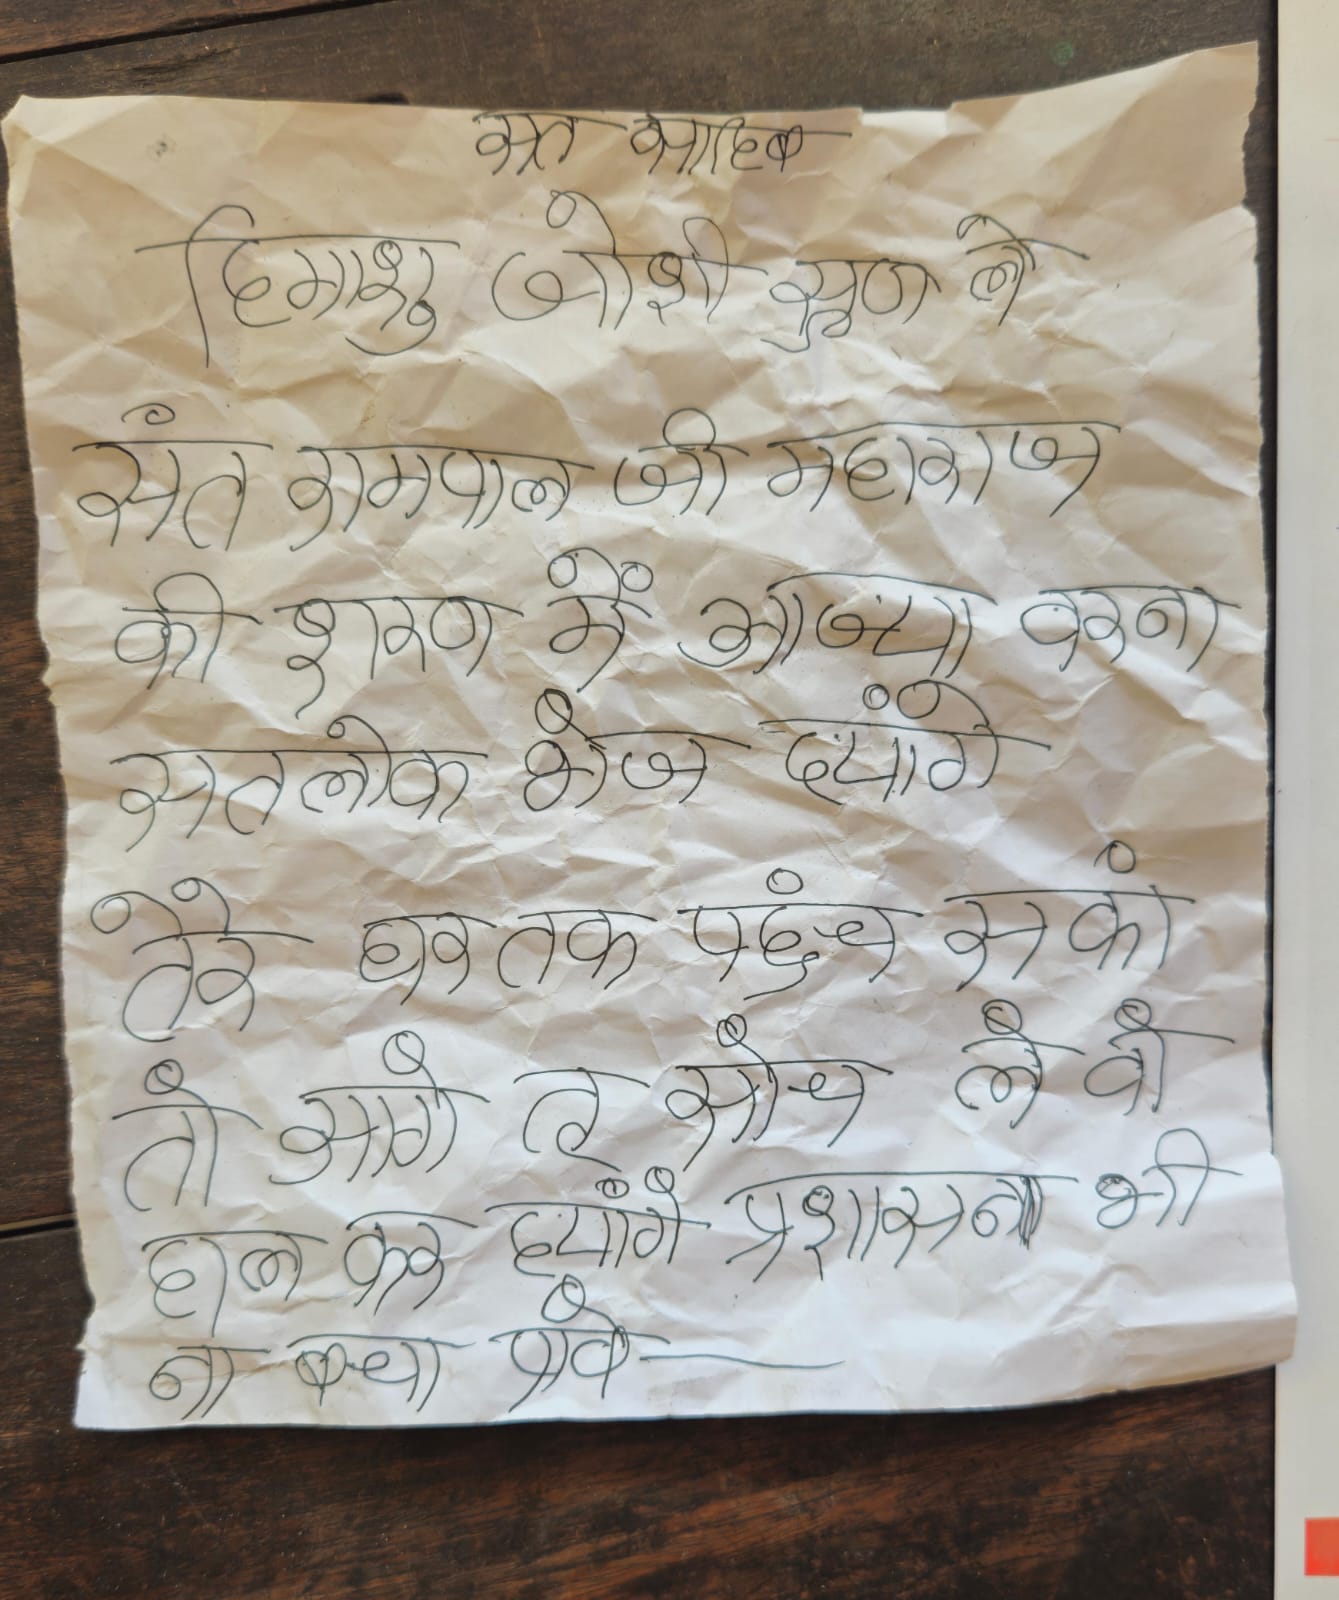 सत साहिब
हिमाशु जोशी सुण ले
संत रामपाल जी महाराज
की शरण में आज्या वरना
सतलोक भेज द्यांगे
तेरे घर तक पहुंच सकां
तो आगे तु सोच ले वो
हाल कर द्यांगे प्रशासन भी
ना बचा पावे